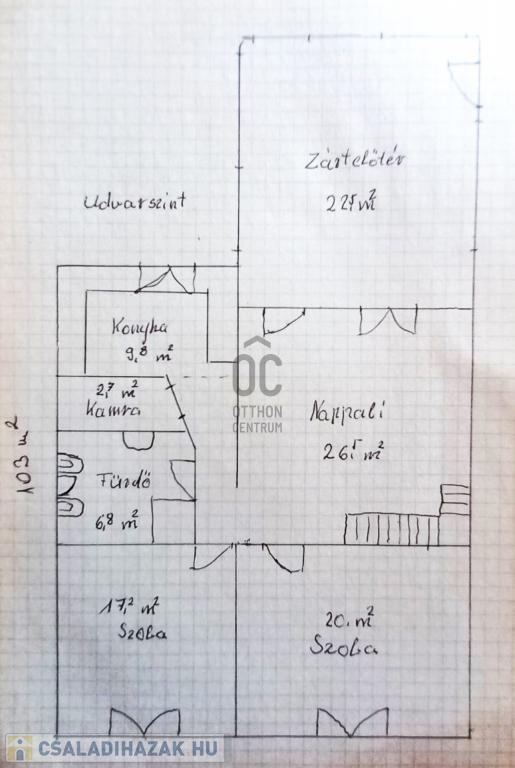 Zártelőtér
22,5 m²
Udvarszint
Konyha
9,8 m²
2,7 m²
Kamra
ÓC
OTTHON
CENTRUM
Nappali
26,5 m²
103 m²
Fürdő
6,8 m²
17,2 m²
Szoba
20. m²
Szoba
CSALADIHAZAK.HU